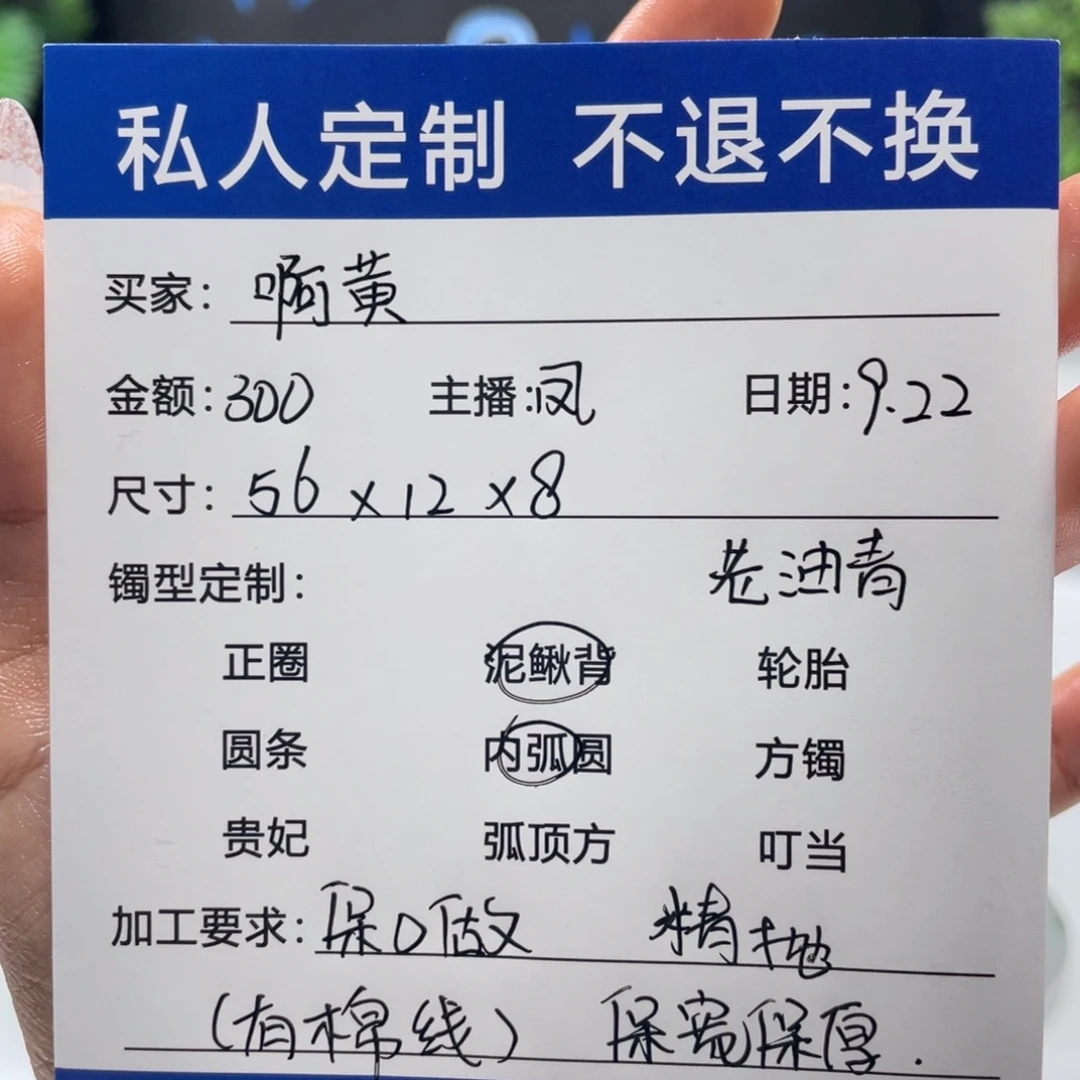 私人定制 不退不换
买家：啊黄
金额：300 主播：凤 日期：9.22
尺寸：56×12×8
老油青
镯型定制：
正圈 泥鳅背 轮胎
圆条 内弧圆 方镯
贵妃 弧顶方 叮当
加工要求：保口做 精抛
（有棉线） 保宽保厚.